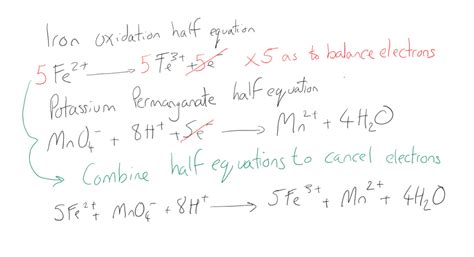 Iron oxidation half equation
5Fe²⁺ → 5Fe³⁺ + 5e⁻ x5 as to balance electrons
Potassium Permanganate half equation
MnO₄⁻ + 8H⁺ + 5e⁻ → Mn²⁺ + 4H₂O
Combine half equations to cancel electrons
5Fe²⁺ + MnO₄⁻ + 8H⁺ → 5Fe³⁺ + Mn²⁺ + 4H₂O